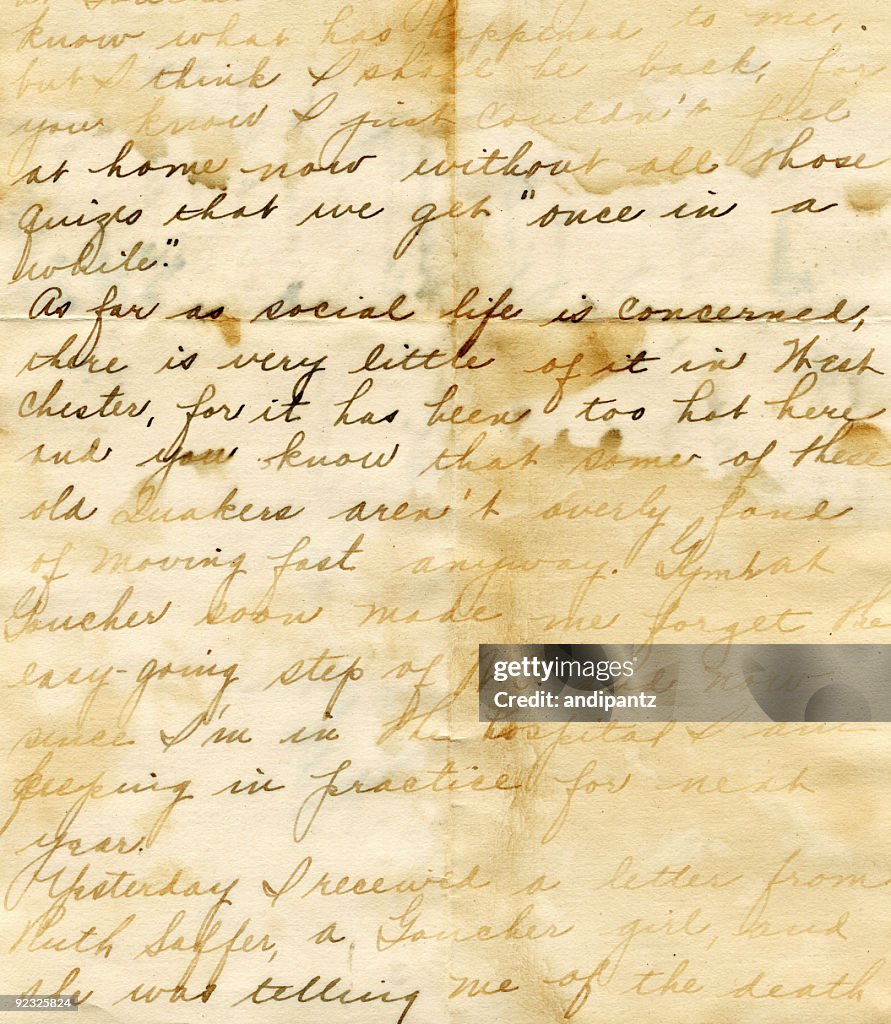 know what has happened to me,
but I think I shall be back, for
you know I just couldn't feel
at home now without all those
quizes that we get "once in a
while."
As far as social life is concerned,
there is very little of it in West
Chester, for it has been too hot here
and you know that some of these
old Quakers aren't overly fond
of moving fast anyway. Gym at
Goucher soon made me forget the
easy-going step of
now
since I'm in the hospital I am
keeping in practice for next
year.
Yesterday I received a letter from
Ruth Saffer, a Goucher girl, and
she was telling me of the death
gettyimages®
Credit: andipantz
92325824